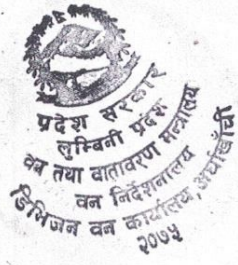 प्रदेश सरकार
लुम्बिनी प्रदेश
वन तथा वातावरण मन्त्रालय
वन निर्देशनालय
डिभिजन वन कार्यालय, अर्घाखाँची
२०७५